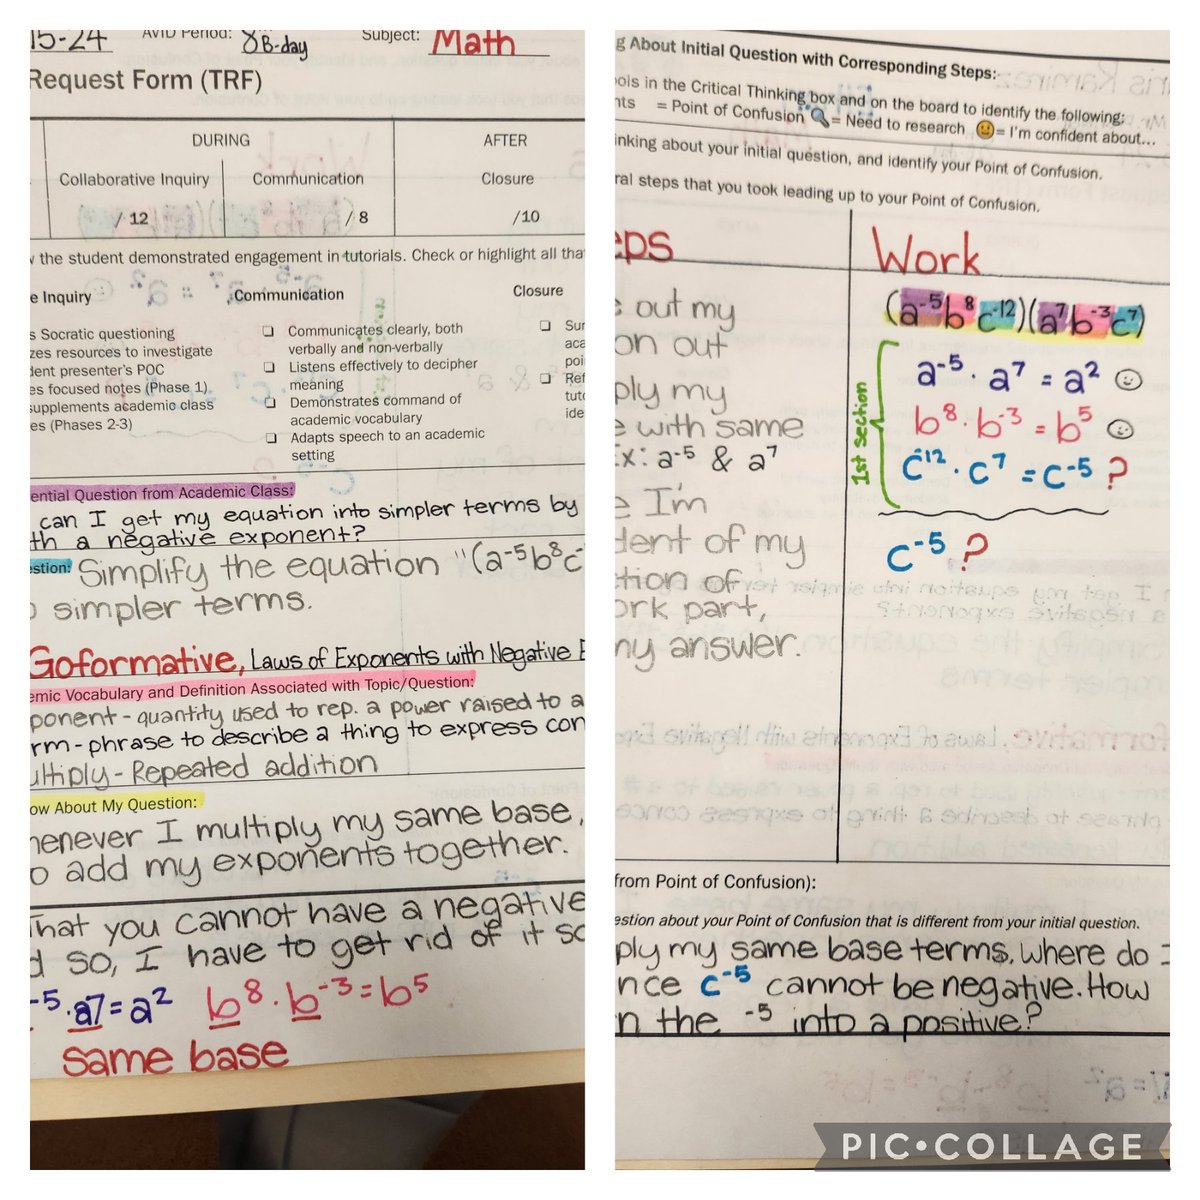 15-24 AVID Period: 8 B-day Subject: Math
Request Form (TRF)
DURING AFTER
Collaborative Inquiry Communication Closure
/ 12 / 8 /10
the student demonstrated engagement in tutorials. Check or highlight all tha
e Inquiry Communication Closure
s Socratic questioning
zes resources to investigate
dent presenter's POC
es focused notes (Phase 1)
supplements academic class
es (Phases 2-3)
❏ Communicates clearly, both
verbally and non-verbally
❏ Listens effectively to decipher
meaning
❏ Demonstrates command of
academic vocabulary
❏ Adapts speech to an academic
setting
❏ Sur
aca
poi
❏ Ref
tuto
ide
ential Question from Academic Class:
can I get my equation into simpler terms by
th a negative exponent?
estion: Simplify the equation "(a⁻⁵b⁸c⁻
simpler terms.
Goformative, Laws of Exponents with Negative E
emic Vocabulary and Definition Associated with Topic/Question:
ponent - quantity used to rep. a power raised to a
rm - phrase to describe a thing to express con
ultiply - Repeated addition
ow About My Question:
henever I multiply my same base,
o add my exponents together.
That you cannot have a negative
d so, I have to get rid of it so
-5 · a7 = a² b⁸ · b⁻³ = b⁵
same base
g About Initial Question with Corresponding Steps:
ools in the Critical Thinking box and on the board to identify the following:
nts = Point of Confusion 🔍 = Need to research 😐 = I'm confident about...
inking about your initial question, and identify your Point of Confusion.
ral steps that you took leading up to your Point of Confusion.
eps
e out my
on out
ply my
e with same
Ex: a⁻⁵ & a⁷
e I'm
dent of my
ction of
ork part,
my answer.
Work
(a⁻⁵b⁸c⁻¹²)(a⁷b⁻³c⁷)
1st section
a⁻⁵ · a⁷ = a²
b⁸ · b⁻³ = b⁵
c⁻¹² · c⁷ = c⁻⁵ ?
c⁻⁵ ?
from Point of Confusion):
estion about your Point of Confusion that is different from your initial question.
ply my same base terms, where do I
nce c⁻⁵ cannot be negative. How
n the -5 into a positive?
PIC•COLLAGE